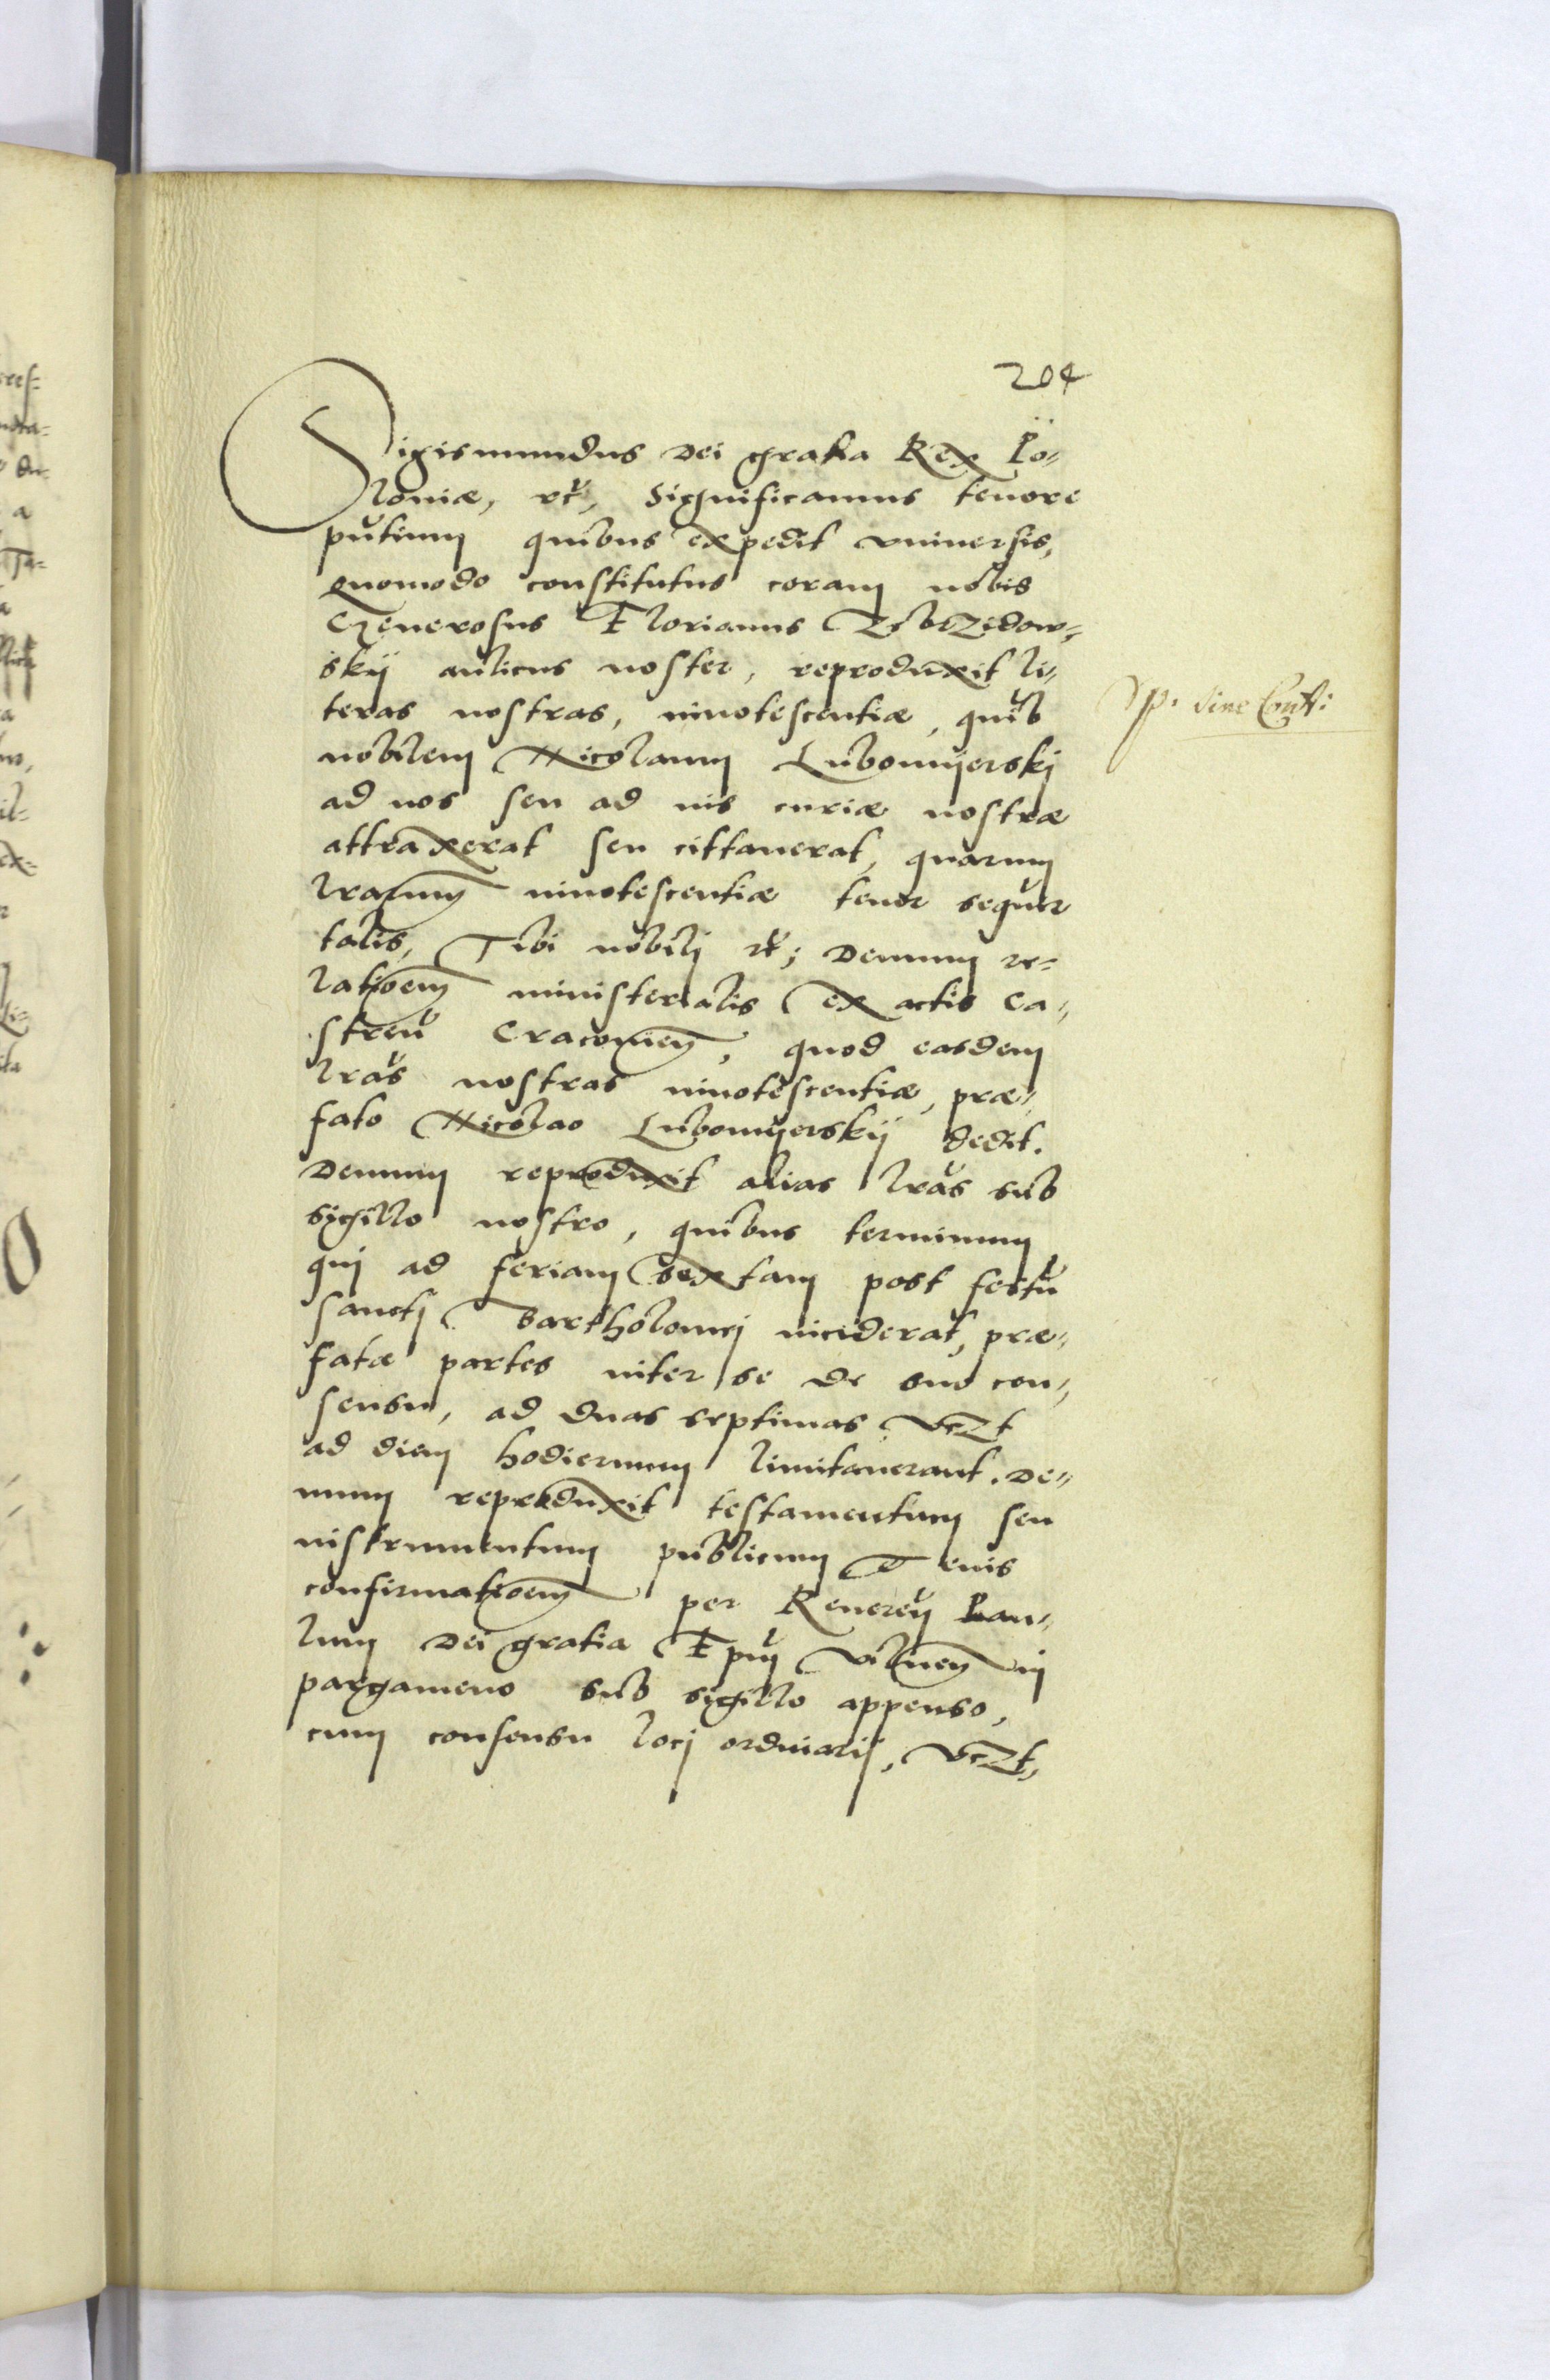 204
Sigismundus Dei gratia Rex Po-
loniæ, etc, Significamus tenore
pñtium quibus expedit vniuersis,
quomodo constitutus coram nobis
Generosus Florianus Zebrzidow-
skÿ aulicus noster, reproduxit li-
teras nostras, innotescentiæ, quib
nobilem Nicolaum Lubomÿerskj
ad nos seu ad iūs curiæ nostræ
attraxerat seu cittauerat, quarum
lrarum innotescentiæ tenor sequr
talis, Tibi nobilj etc; Demum re-
latioem ministerialis ex actis Ca-
streñ Cracouieñ, quod easdem
lras nostras innotescentiæ, præ-
fato Nicolao Lubomÿerskÿ dedit.
Demum reproduxit alias lras sub
sigillo nostro, quibus terminum
qui ad feriam sextam post festū
sanctj Bartholomej inciderat, præ-
fatæ partes inter se de suo con-
sensu, ad duas septimas, vczt
ad diem hodiernum limitauerant. De-
mum reproduxit testamentum seu
instrumentum publicum et eius
confirmatioem per Reuereñ Pau-
lum Dei gratia Epum Vilneñ in
pargameno sub sigillo appenso,
cum consensu locj ordinarij, vczt,
sine Conti: